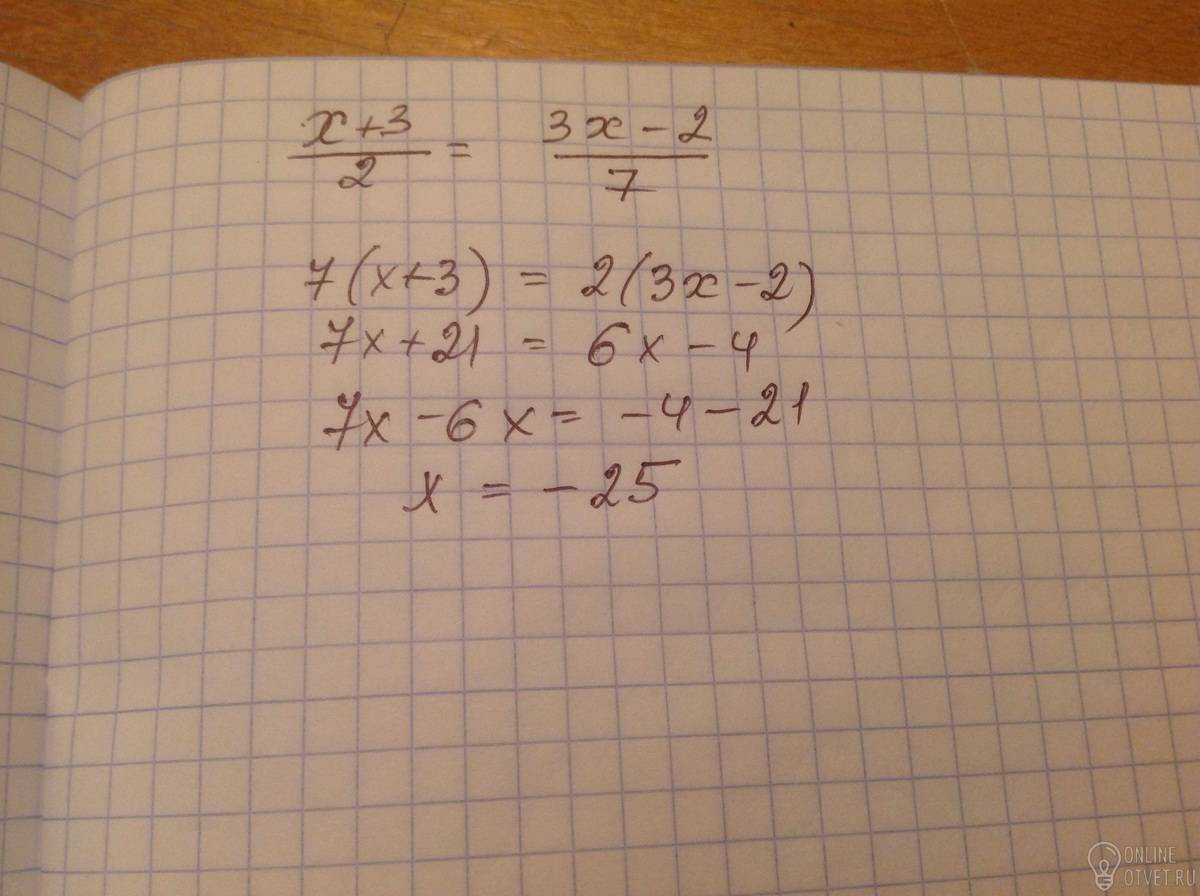 x+3/2 = 3x-2/7
7(x+3) = 2(3x-2)
7x+21 = 6x-4
7x-6x = -4-21
x = -25
ONLINE
OTVET.RU